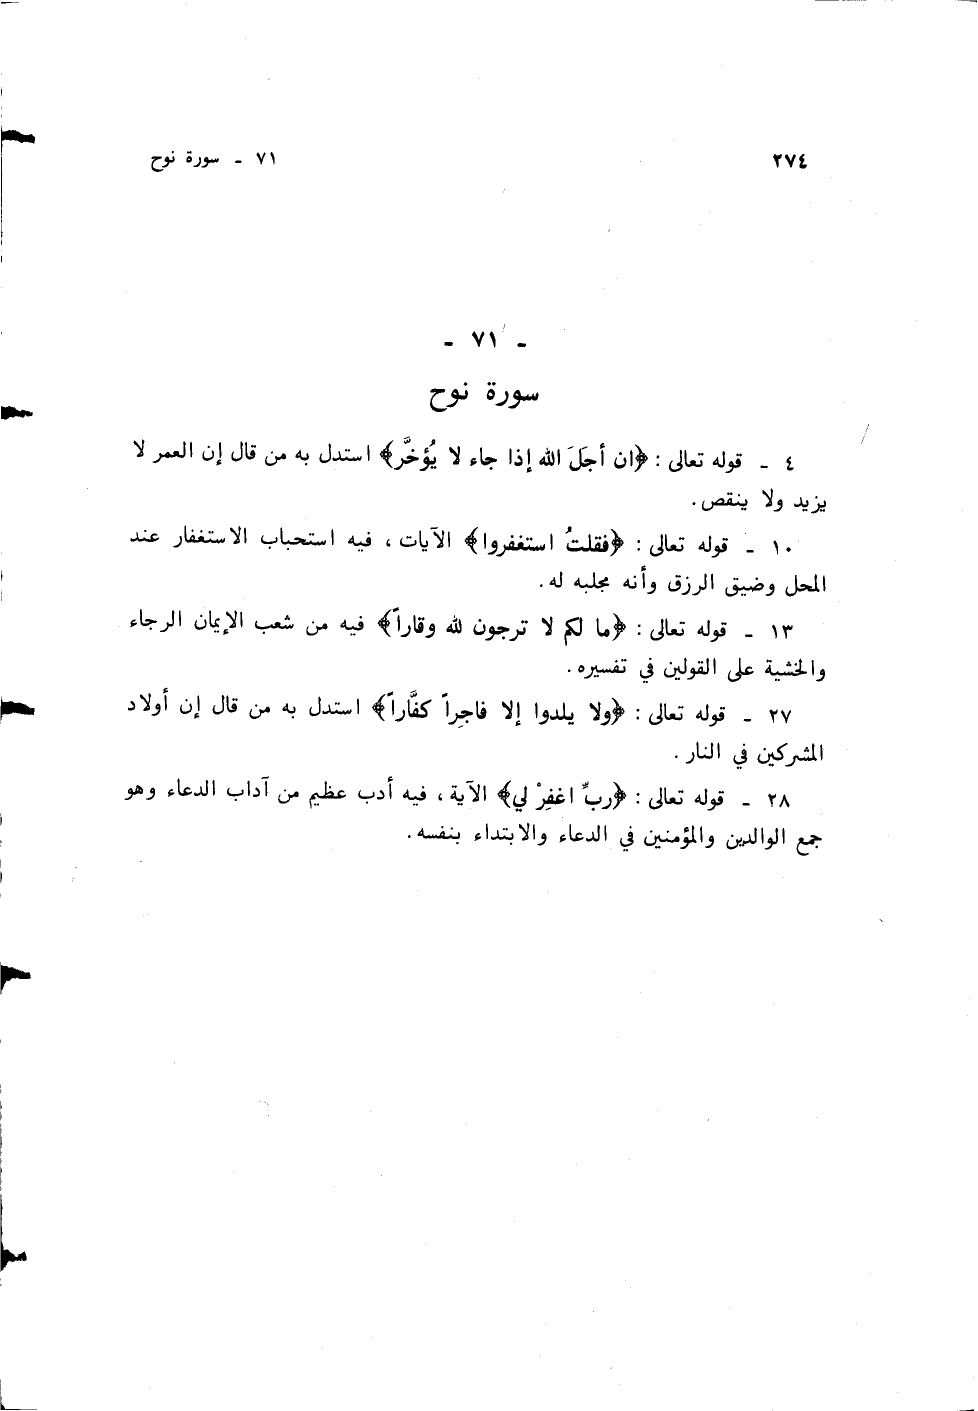 ٢٧٤
٧١ ـ سورة نوح
ـ ٧١ ـ
سورة نوح
٤ ـ قوله تعالى : ﴿ان أجَلَ الله إذا جاء لا يُؤخَّر﴾ استدل به من قال إن العمر لا
يزيد ولا ينقص.
١٠ ـ قوله تعالى : ﴿فقلتُ استغفروا﴾ الآيات ، فيه استحباب الاستغفار عند
المحل وضيق الرزق وأنه مجلبه له.
١٣ ـ قوله تعالى : ﴿ما لكم لا ترجون لله وقاراً﴾ فيه من شعب الإيمان الرجاء
والخشية على القولين في تفسيره.
٢٧ ـ قوله تعالى : ﴿ولا يلدوا إلا فاجِراً كفَّاراً﴾ استدل به من قال إن أولاد
المشركين في النار .
٢٨ ـ قوله تعالى : ﴿ربِّ اغفِرْ لي﴾ الآية ، فيه أدب عظيم من آداب الدعاء وهو
جمع الوالدين والمؤمنين في الدعاء والابتداء بنفسه.